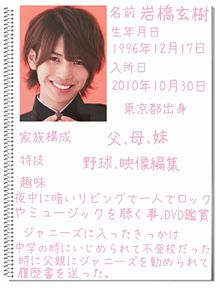 名前 岩橋玄樹
生年月日
1996年12月17日
入所日
2010年10月30日
東京都出身
家族構成 父、母、妹
特技 野球、映像編集
趣味
夜中に暗いリビングで一人でロック
やミュージックを聴く事、DVD鑑賞
ジャニーズに入ったきっかけ
中学の時にいじめられて不登校だった
時に父親にジャニーズを勧められて
履歴書を送った。